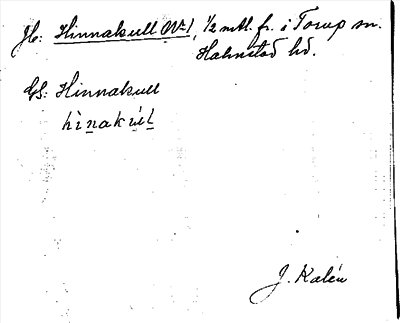 Jb: Hinnakull Nr 1, 1/2 mtl. fr. i Torup sn.
Halmstad hd.
GS: Hinnakull
hìnakúl
J. Kalén